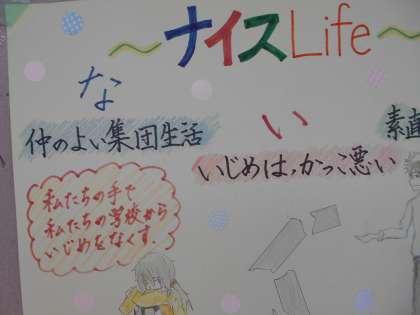 ～ナイスLife～
な
仲のよい集団生活
い
いじめは、かっこ悪い
素直
私たちの手で
私たちの学校から
いじめをなくす.